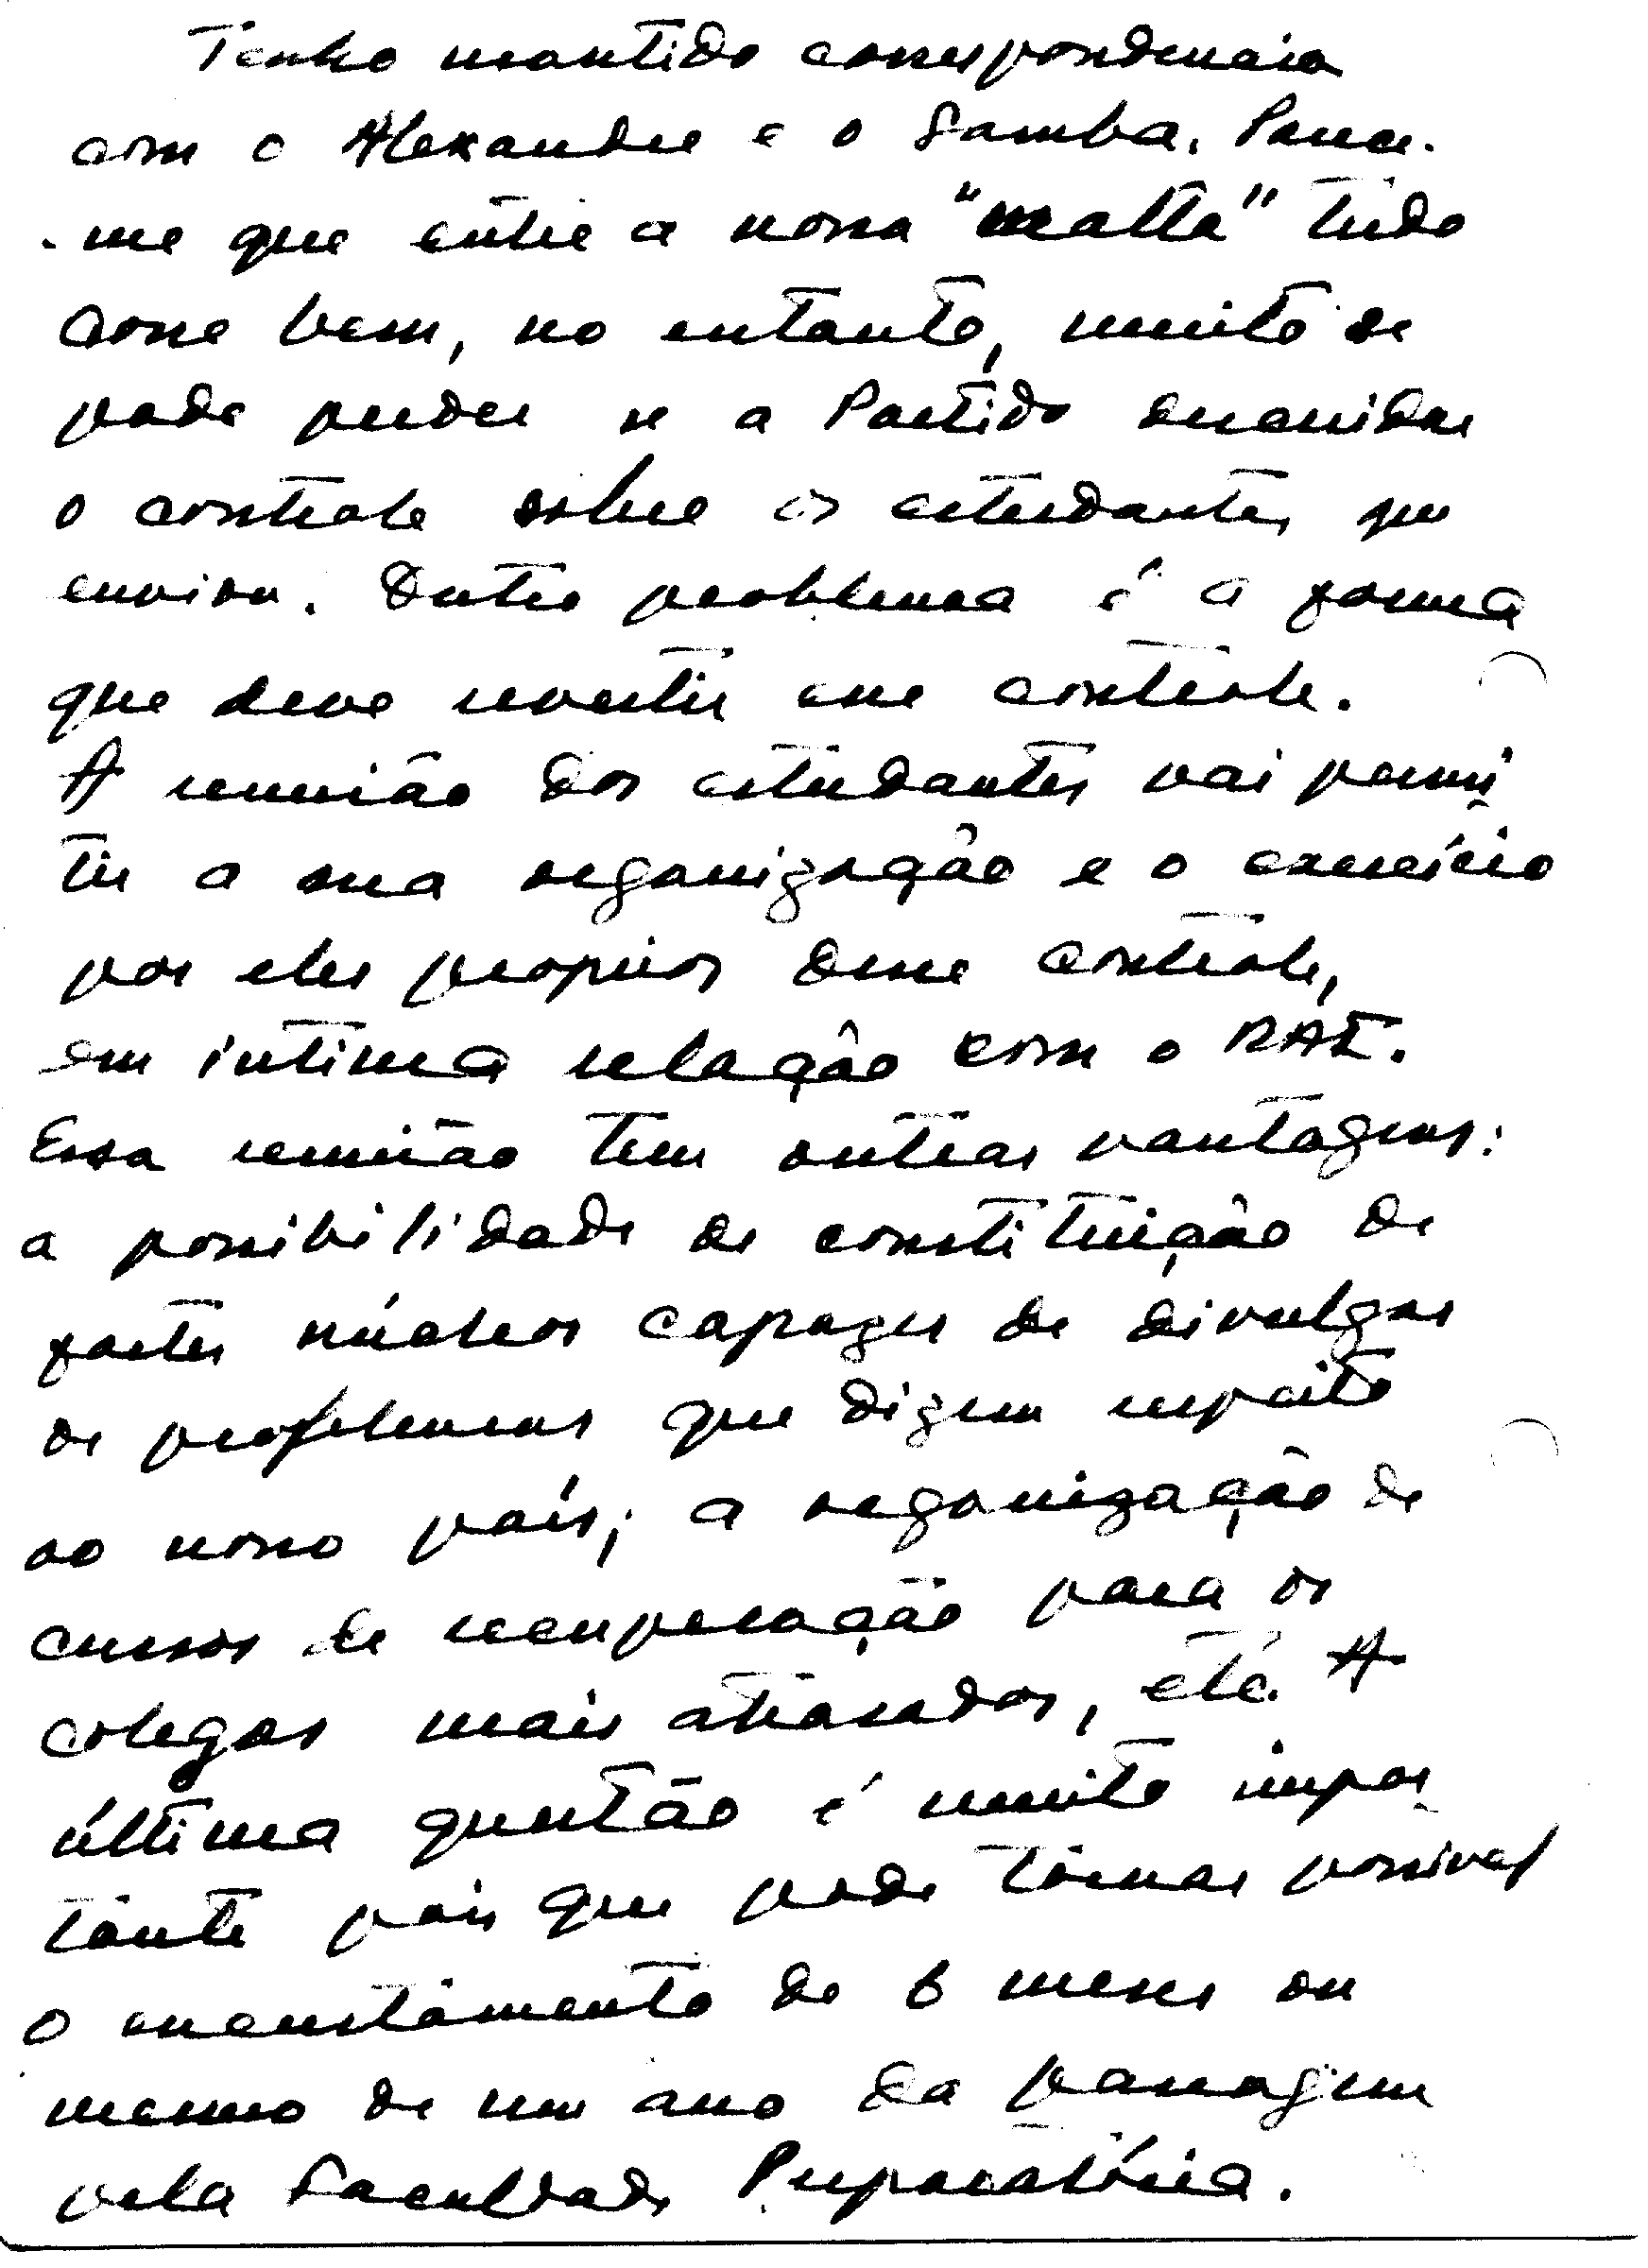 Tenho mantido correspondencia
com o Alexandre e o Samba. Parece-
-me que entre a nossa "malta" tudo
corre bem, no entanto, muito se
pode perder se o Partido descuidar
o controle sobre os estudantes que
enviou. Outro problema é a forma
que deve revestir esse controle.
A reunião dos estudantes vai permi
tir a sua organização e o exercício
por eles proprios desse controle,
em intima relação com o RAE.
Essa reunião tem outras vantagens:
a possibilidade de constituição de
fortes núcleos capazes de divulgar
os problemas que dizem respeito
ao nosso país; a organização de
cursos de recuperação para os
colegas mais atrasados, etc. A
última questão é muito impor
tante pois que pode tornar possivel
o encurtamento de 6 meses ou
mesmo de um ano da passagem
pela Faculdade Preparatória.